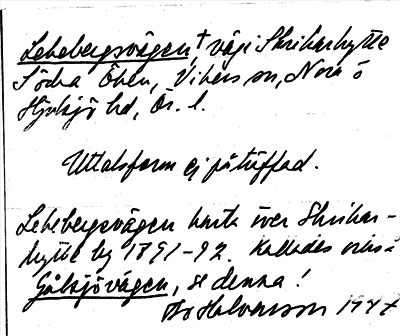 Lekebergsvägen,† väg i Skrikarhytte
Södra Ölen, Vikers sn, Nora o
Hjulsjö hd, Ör. l.
Uttalsform ej påträffad.
Lekebergsvägen karta över Skrikar-
hytte by 1891-92. Kallades också
Gålsjövägen, se denna!
Bo Halvarsson 1947